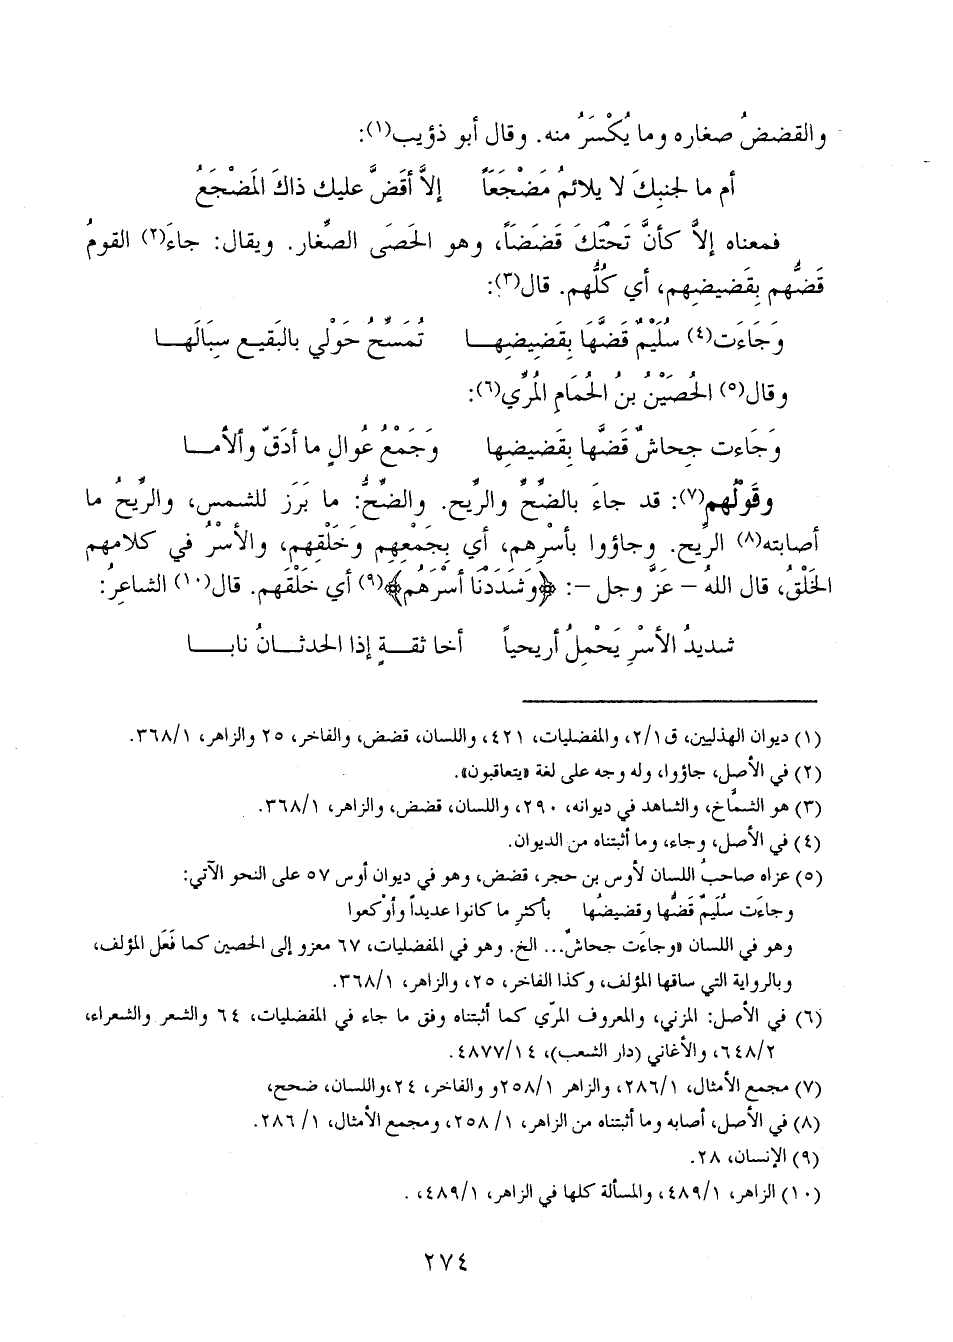 والقضضُ صغاره وما يُكْسَرُ منه. وقال أبو ذؤيب(١):
أم ما لجنبِكَ لا يلائمُ مَضْجَعَاً إلاَّ أقَضَّ عليك ذاكَ المَضْجَعُ
فمعناه إلاَّ كأنَّ تَحْتَكَ قَضَضَاً، وهو الحَصَى الصِّغار. ويقال: جاءَ(٢) القومُ
قَضُّهم بِقَضيضِهم، أي كُلُّهم. قال(٣):
وَجَاءَت(٤) سُلَيْمٌ قَضَّهَا بِقَضيضِهـا تُمَسِّحُ حَوْلي بالبَقيع سِبَالَهـا
وقال(٥) الحُصَيْنُ بنُ الحُمَامِ المُرِّي(٦):
وَجَاءَت جِحاشٌ قَضَّها بِقَضيضِها وَجَمْعُ عُوالٍ ما أدَقّ وألأمـا
وقَوْلُهم(٧): قد جاءَ بالضِّحِّ والرِّيح. والضِّحُّ: ما بَرَز للشمس، والرِّيحُ ما
أصابته(٨) الرِّيح. وجاؤوا بأسْرِهم، أي بِجَمْعِهِم وَخَلْقِهم، والأسْرُ في كلامهم
الخَلْقُ، قال اللهُ – عَزَّ وجل –: ﴿وَشَدَدْنَا أسْرَهُم﴾(٩) أي خَلْقَهم. قال(١٠) الشاعِرُ:
شديدُ الأسْرِ يَحْمِلُ أريحياً أخا ثقـةٍ إذا الحدثـانُ نابـا
(١) ديوان الهذليين، ق٢/١، والمفضليات، ٤٢١، واللسان، قضض، والفاخر، ٢٥ والزاهر، ٣٦٨/١.
(٢) في الأصل، جاؤوا، وله وجه على لغة «يتعاقبون».
(٣) هو الشمَّاخ، والشاهد في ديوانه، ٢٩٠، واللسان، قضض، والزاهر، ٣٦٨/١.
(٤) في الأصل، وجاء، وما أثبتناه من الديوان.
(٥) عزاه صاحبُ اللسان لأوس بن حجر، قضض، وهو في ديوان أوس ٥٧ على النحو الآتي:
وجاءَت سُلَيمٌ قَضُّها وقضيضُها بأكثرِ ما كانوا عديداً وأوْكعوا
وهو في اللسان «وجاءَت جحاشٌ... الخ. وهو في المفضليات، ٦٧ معزو إلى الحصين كما فَعَل المؤلف،
وبالرواية التي ساقها المؤلف، وكذا الفاخر، ٢٥، والزاهر، ٣٦٨/١.
(٦) في الأصل: المزني، والمعروف المرّي كما أثبتناه وفق ما جاء في المفضليات، ٦٤ والشعر والشعراء،
٦٤٨/٢، والأغاني (دار الشعب)، ٤٨٧٧/١٤.
(٧) مجمع الأمثال، ٢٨٦/١، والزاهر ٢٥٨/١و والفاخر، ٢٤،واللسان، ضحح،
(٨) في الأصل، أصابه وما أثبتناه من الزاهر، ١/ ٢٥٨، ومجمع الأمثال، ١/ ٢٨٦.
(٩) الإنسان، ٢٨.
(١٠) الزاهر، ٤٨٩/١، والمسألة كلها في الزاهر، ٤٨٩/١، .
٢٧٤